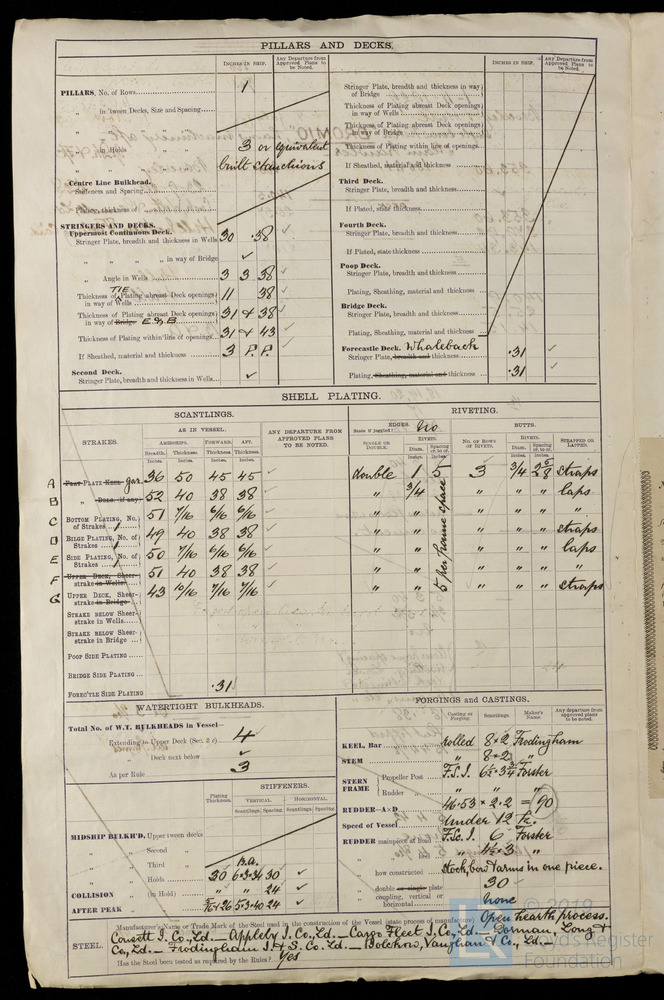 PILLARS AND DECKS.
INCHES IN SHIP.
Any Departure from Approved Plans to be Noted.
PILLARS, No. of Rows 1
„ in 'tween Decks, Size and Spacing
„ „
„ in Holds 3 or equivalent
„ „ built stanchions
Centre Line Bulkhead.
Stiffeners and Spacing
Plating, thickness of
STRINGERS AND DECKS.
Uppermost Continuous Deck.
Stringer Plate, breadth and thickness in Wells 30 .38 ✓
„ „ „ „ in way of Bridge ✓
„ Angle in Wells 3 3 38 ✓
TIE
Thickness of Plating abreast Deck openings in way of Wells 11 38 ✓
Thickness of Plating abreast Deck openings in way of Bridge E & B 31 + 38 ✓
Thickness of Plating within line of openings 31 + 43 ✓
If Sheathed, material and thickness 3 P.P. ✓
Second Deck.
Stringer Plate, breadth and thickness in Wells ✓
INCHES IN SHIP.
Any Departure from Approved Plans to be Noted.
Stringer Plate, breadth and thickness in way of Bridge
Thickness of Plating abreast Deck openings in way of Wells
Thickness of Plating abreast Deck openings in way of Bridge
Thickness of Plating within line of openings
If Sheathed, material and thickness
Third Deck.
Stringer Plate, breadth and thickness
If Plated, state thickness
Fourth Deck.
Stringer Plate, breadth and thickness
If Plated, state thickness
Poop Deck.
Stringer Plate, breadth and thickness
Plating, Sheathing, material and thickness
Bridge Deck.
Stringer Plate, breadth and thickness
Plating, Sheathing, material and thickness
Forecastle Deck. Whaleback
Stringer Plate, breadth and thickness .31 ✓
Plating, Sheathing, material and thickness .31 ✓
SHELL PLATING.
SCANTLINGS.
RIVETING.
STRAKES.
AS IN VESSEL.
AMIDSHIPS. FORWARD. AFT.
Breadth. Thickness. Thickness. Thickness.
Inches. Inches. Inches. Inches.
ANY DEPARTURE FROM APPROVED PLANS TO BE NOTED.
EDGES. No
State if joggled?
SINGLE OR DOUBLE.
RIVETS.
Diam. Spacing cr. to cr.
Inches. Inches.
BUTTS.
No. OF ROWS OF RIVETS.
RIVETS.
Diam. Spacing cr. to cr.
Inches. Inches.
STRAPPED OR LAPPED.
A FLAT PLATE KEEL gar. 36 50 45 45 ✓ double 1 5 3 3/4 straps
B „ DBLG. (if any) 52 40 38 38 ✓ „ 3/4 „ „ „ laps
C BOTTOM PLATING, No. of Strakes 1 51 7/16 6/16 6/16 ✓ „ „ „ „ „ „
D BILGE PLATING, No. of Strakes 1 49 40 38 38 ✓ „ „ „ „ „ straps
E SIDE PLATING, No. of Strakes 1 50 7/16 6/16 6/16 ✓ „ „ „ „ „ laps
F UPPER DECK, Sheer-strake in Wells 51 40 38 38 ✓ „ „ „ „ „ „
G UPPER DECK, Sheer-strake in Bridge 43 10/16 7/16 7/16 ✓ „ „ „ „ „ straps
5 per frame space
STRAKE BELOW Sheer-strake in Wells
STRAKE BELOW Sheer-strake in Bridge
POOP SIDE PLATING
BRIDGE SIDE PLATING
FOREC'TLE SIDE PLATING .31
WATERTIGHT BULKHEADS.
Total No. of W.T. BULKHEADS in Vessel—
Extending to Upper Deck 4
„ Deck next below ✓
As per Rule 3
Plating Thickness.
STIFFENERS.
VERTICAL. HORIZONTAL.
Scantlings. Spacing. Scantlings. Spacing.
MIDSHIP BULKH'D, Upper tween decks
„ „ Second „
„ „ Third „
B.A.
„ „ Holds 30 6·3·34 30 ✓
COLLISION „ (in Hold) „ „ 24 ✓
AFTER PEAK „ „ 5·3·40 24 ✓
FORGINGS and CASTINGS.
Casting or Forging. Scantlings. Maker's Name. Any departure from approved plans to be noted.
KEEL, Bar rolled 8 × 2 Frodingham
STEM „ 8 × 2 „
STERN FRAME Propeller Post Forster
Rudder „ „ „ „
RUDDER—A×D 46·53 × 2·2 = 90
Speed of Vessel Under 12 K.
RUDDER mainpiece at head F.Sc.I. 6 Forster
„ „ „ 4½·3 „
„ how constructed stock, bow & arms in one piece.
„ double or single plate 30 ✓
„ coupling, vertical or horizontal None
STEEL.
Manufacturer's Name or Trade Mark of the Steel used in the construction of the Vessel (state process of manufacture) Open hearth process.
Consett I. Co., Ld. — Appleby I. Co., Ld. — Cargo Fleet I. Co., Ld. — Dorman, Long &
Co., Ld. — Frodingham I. & S. Co. Ld. — Bolckow, Vaughan & Co., Ld. —
Has the Steel been tested as required by the Rules? Yes
© 2019
Lloyd's Register
Foundation